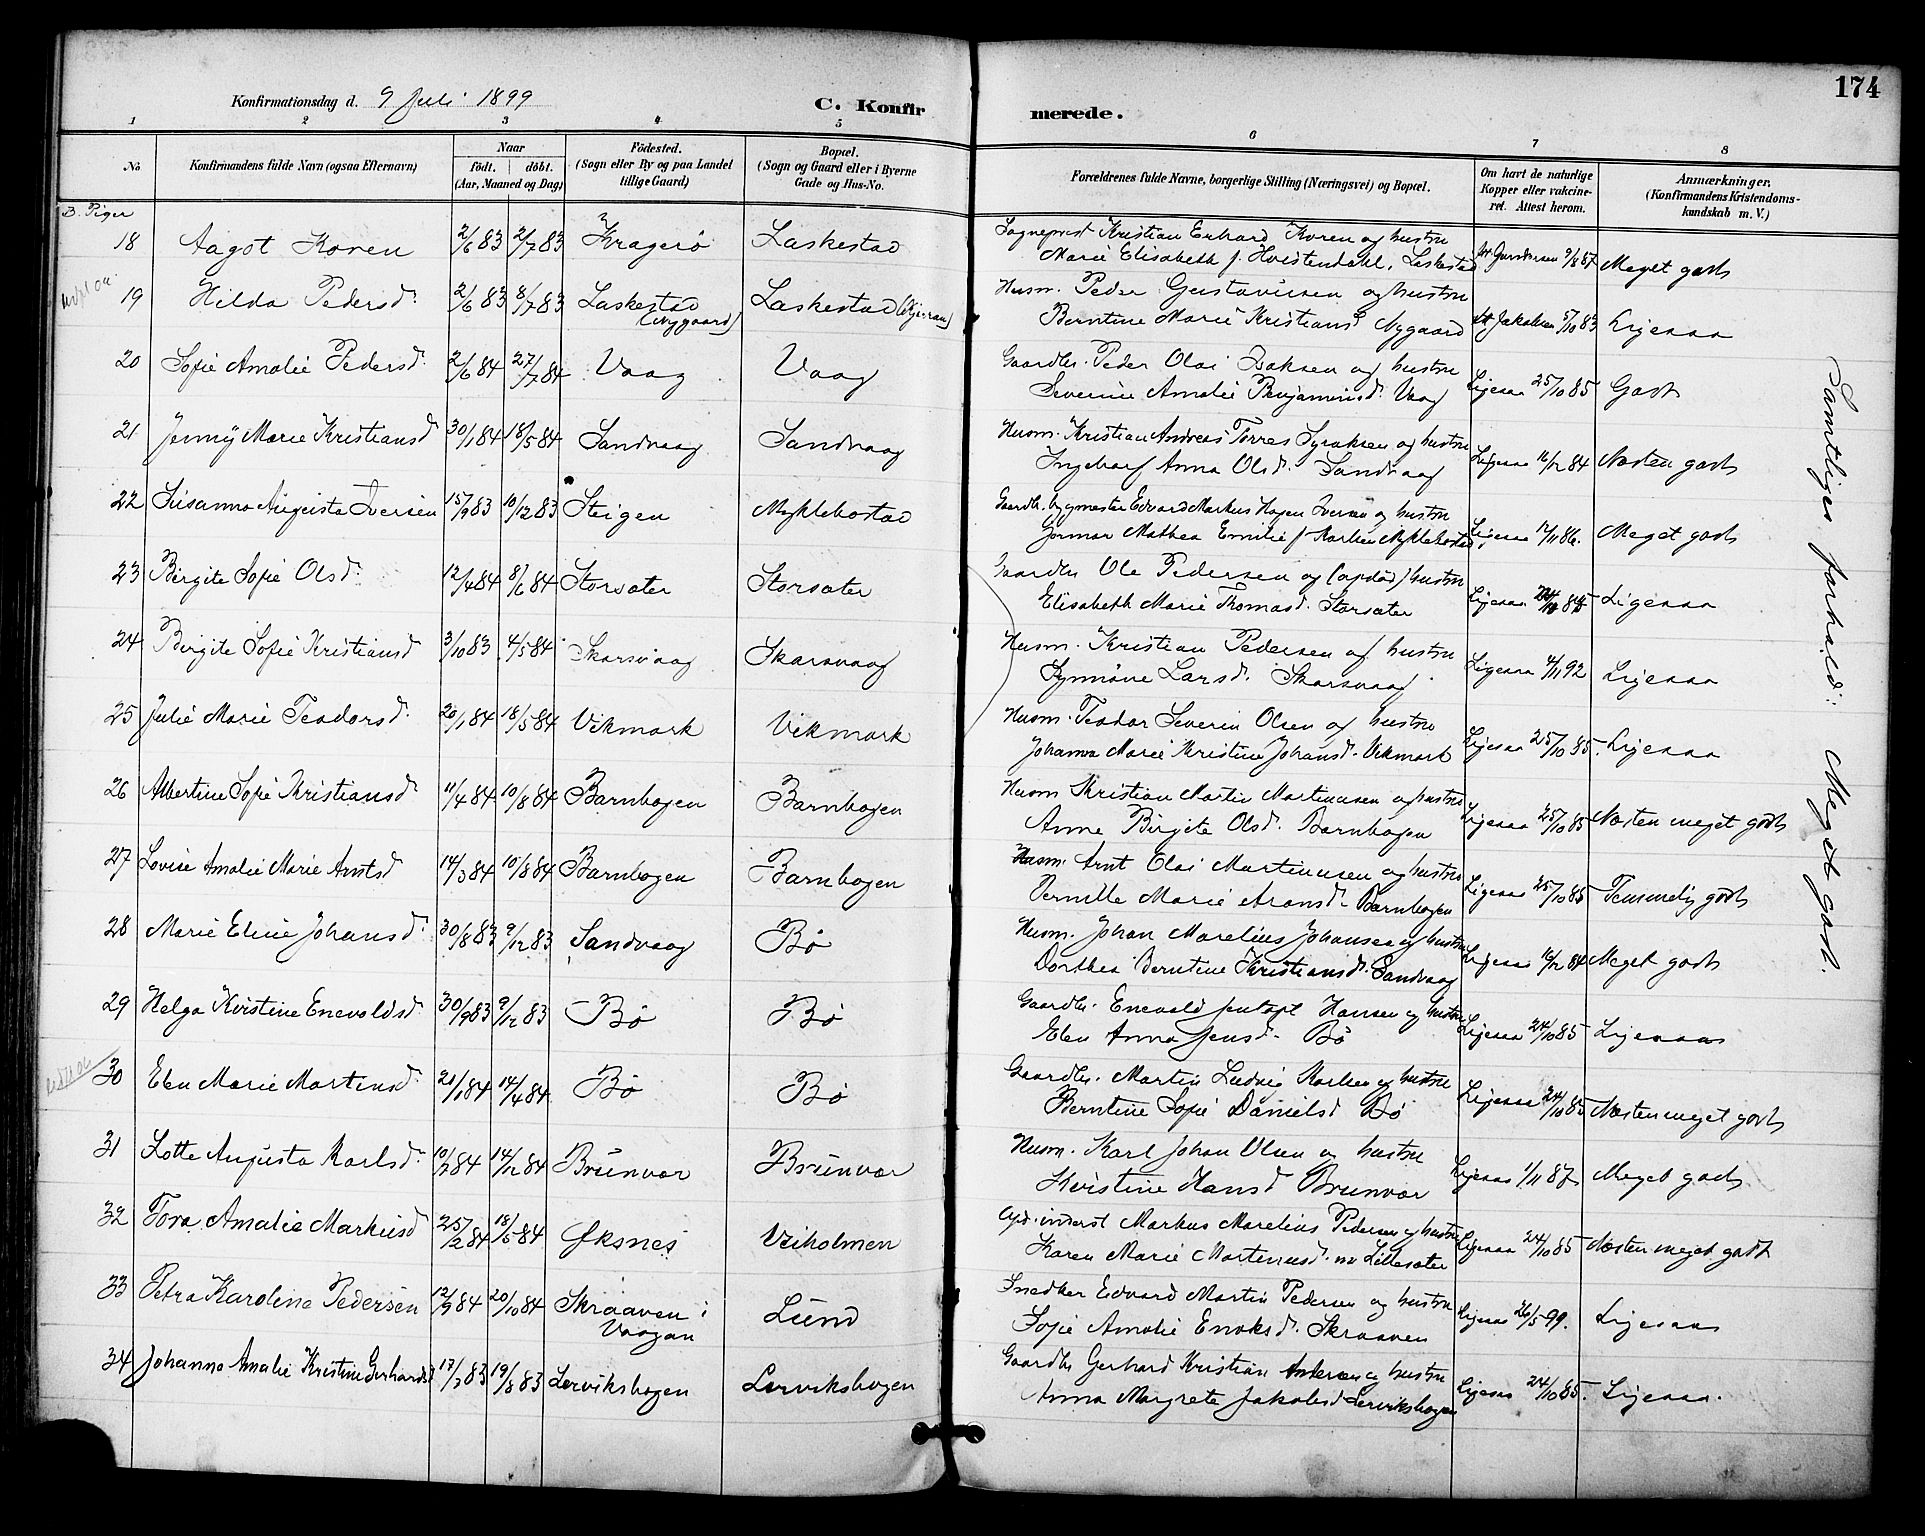 174
Konfirmationsdag d. 9 Juli 1899 C. Konfir merede.
1 2 3 4 5 6 7 8
No Konfirmandens fulde Navn (ogsaa Efternavn) Naar födt. döbt. (Aar, Maaned og Dag) Födested. (Sogn eller By og paa Landet tillige Gaard) Bopæl. (Sogn og Gaard eller i Byerne Gade og Hus-No. Forældrenes fulde Navne, borgerlige Stilling (Næringsvei) og Bopæl. Om havt de naturlige Kopper eller vakcineret. Attest herom. Anmærkninger. (Konfirmandens Kristendomskundskab m. V.)
B. Piger
18 Aagot Koren 2/6 83 2/7 83 Kragerö Laskestad Sogneprest Kristian Erhard Koren og hustru
Marie Elisabeth f. Hvistendahl, Laskestad Gundersen 9/8 87 Meget godt
19 Hilda Pedersd. 2/6 83 8/7 83 Laskestad (Nygaard) Laskestad Husm. Peder Gustavsen og hustru
Berntine Marie Kristiansd Nygaard Jakobsen 5/10 83 Ligesaa
20 Sofie Amalie Pedersd. 2/6 84 27/7 84 Vaag Vaag Gaardbr. Peder Olai Isaksen og hustru
Severine Amalie Benjaminsd. Vaag Ligesaa 25/10 85 Godt
21 Jenny Marie Kristiansd 30/1 84 18/5 84 Sandvaag Sandvaag Husm. Kristian Andreas Torres Syraksen og hustru
Ingeborg Anna Olsd. Sandvaag Ligesaa 16/12 84 Næsten godt
22 Susanna Augusta Iversen 15/9 83 10/12 83 Steigen Myklebostad Gaardbr. bygmester Edvard Markus Hagen Iversen og hustru
Mathea Emilie f. Karlsen Myklebostad Ligesaa 12/11 86. Meget godt
23 Birgite Sofie Olsd. 12/4 84 8/6 84 Storsæter Storsæter Gaardbr Ole Pedersen og (opdöd) hustru
Elisabeth Marie Thomasd. Storsæter Ligesaa Ligesaa
24 Birgite Sofie Kristiansd 3/10 83 4/5 84 Skarsvaag Skarsvaag Husm. Kristian Pedersen og hustru
Synnöve Larsd. Skarsvaag Ligesaa 4/11 92 Ligesaa
25 Julie Marie Teodorsd. 20/1 84 18/5 84 Vikmark Vikmark Husm. Teodor Severin Olsen og hustru
Johanna Marie Kristine Johansd. Vikmark Ligesaa 25/10 85. Ligesaa
26 Albertine Sofie Kristiansd. 11/4 84 10/8 84 Barnbogen Barnbogen Husm Kristian Martin Martinusen og hustru
Anne Birgite Olsd. Barnbogen Ligesaa 25/10 85 Næsten meget godt
27 Lovise Amalie Marie Arntsd 14/3 84 10/8 84 Barnbogen Barnbogen Husm. Arnt Olai Martinusen og hustru
Pernille Marie Aronsd. Barnbogen Ligesaa 25/10 85 Temmelig godt
28 Marie Eline Johansd. 30/8 83 9/12 83 Sandvaag Bö Husm. Johan Marelius Johansen og hustru
Dorthea Berntine Kristiansd. Sandvaag Ligesaa 16/12 84 Meget godt
29 Helga Kristine Enevoldsd. 30/9 83 9/12 83 Bö Bö Gaardbr. Enevold Hansen og hustru
Elen Anna Jensd. Bö Ligesaa 24/10 85 Ligesaa
30 Elen Marie Martinsd. 21/1 84 14/4 84. Bö Bö Gaardbr. Martin Ludvig Karlsen og hustru
Berntine Sofie Danielsd Bö Ligesaa 24/10 85 Næsten meget godt
31 Lotte Augusta Karlsd. 84 14/12 84 Brunvær Brunvær Husm. Karl Johan Olsen og hustru
Kristine Hansd Brunvær Ligesaa 1/11 87. Meget godt.
32 Tora Amalie Markusd 25/2 84 18/5 84 Öksnes Veiholmen Opd. inderst Markus Marelius Pedersen og hustru
Karen Marie Martinusd. nu Lillesæter Ligesaa 24/10 85 Næsten meget godt
33 Petra Karoline Pedersen 12/9 84 20/10 84 Skraaven i Vaagan Lund Snedker Edvard Martin Pedersen og hustru
Sofie Amalie Enoksd. Skraaven Ligesaa 26/5 99. Ligesaa
34 Johanna Amalie Kristine Gerhardsd 83 19/8 83 Lerviksbogen Lerviksbogen Gaardbr Gerhard Kristian Andersen og hustru
Anna Margrete Jakobsd Lerviksbogen Ligesaa 24/10 85. Ligesaa.
Samtliges forhold: Meget godt.